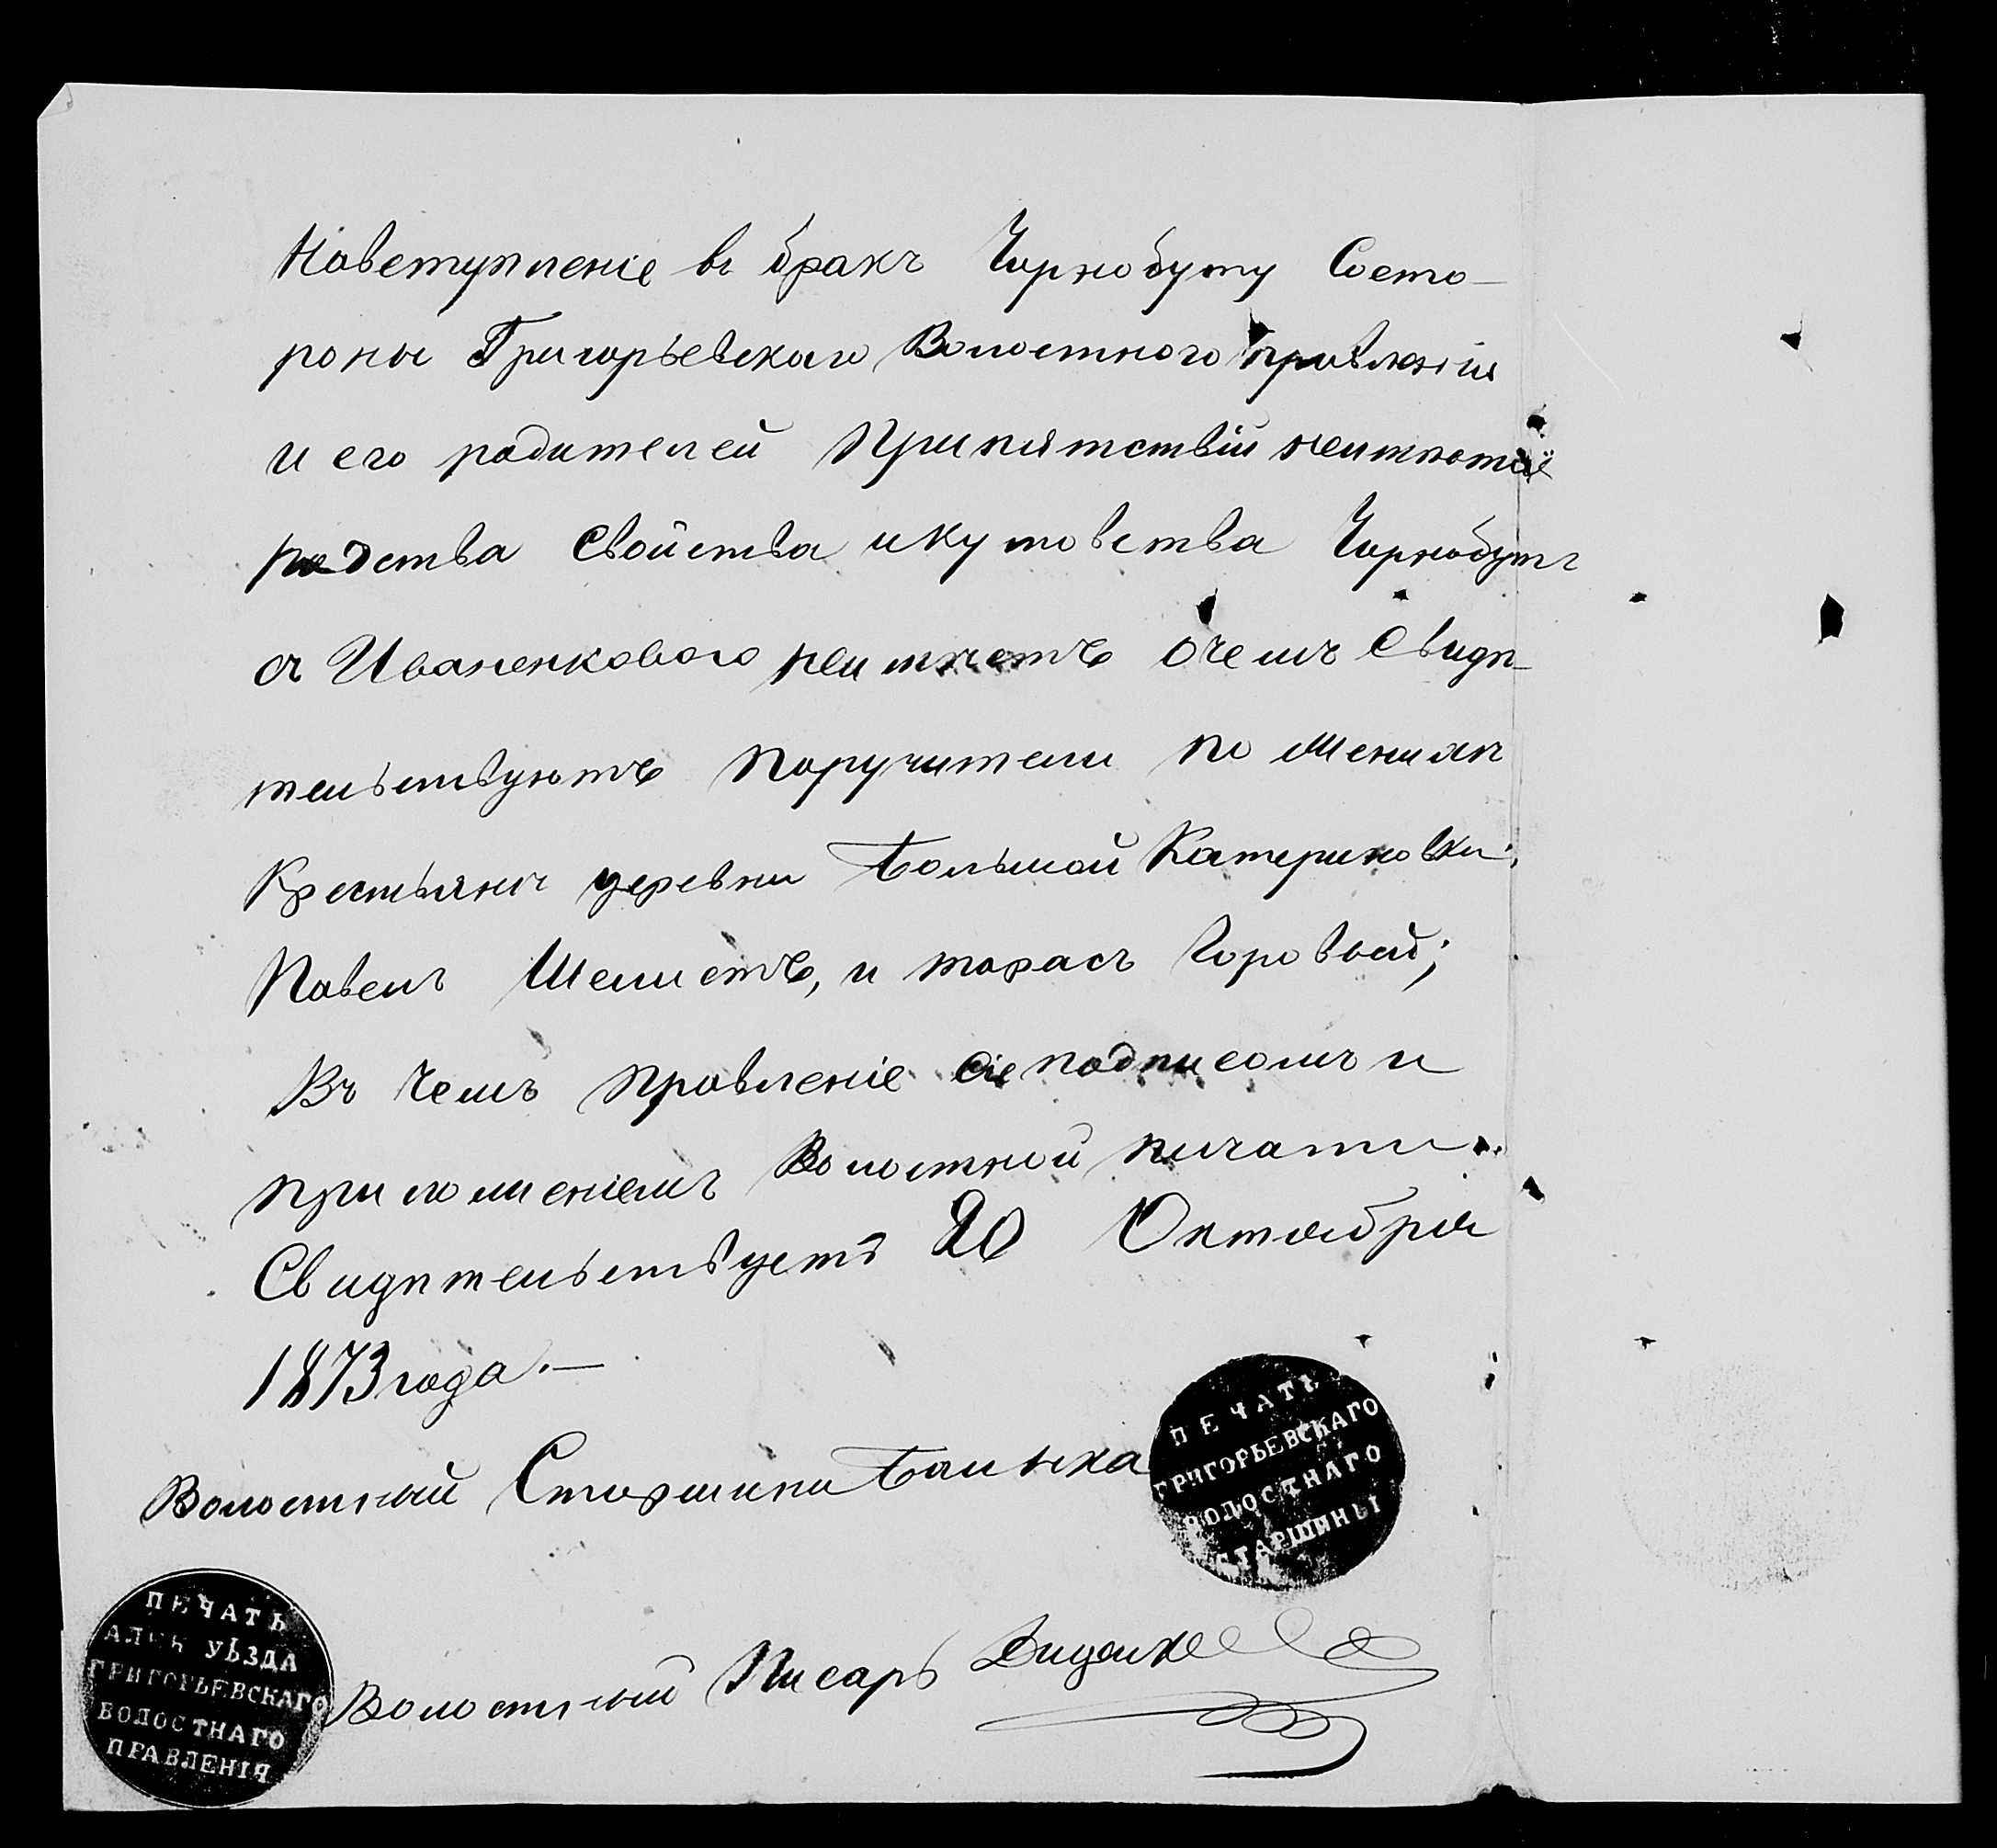 Навступленіе въ бракъ Чорнобуту Состо-
роны Григорьевскаго Волостного правленія
и его родителей Припятствій неимѣется
родства Свойства икумовства Чорнобутъ
съ Иваненковою неимѣетъ очемъ Свидѣ-
тельствуютъ Поручители по
Крестьяне деревни Большой Катериновки:
Павелъ Шелистъ, и тарасъ Горовый;
Въ чемъ правленіе сіе подписомъ и
приложеніемъ Волостной печати
Свидѣтельствуетъ 20 Октября
1873 года.—
Волостный Старшина Балыка
ПЕЧАТЬ
ГРИГОРЬЕВСКАГО
ВОЛОСТНАГО
СТАРШИНЫ
Волостный Писарь
ПЕЧАТЬ
АЛЕК УѢЗДА
ГРИГОРЬЕВСКАГО
ВОЛОСТНАГО
ПРАВЛЕНІЯ